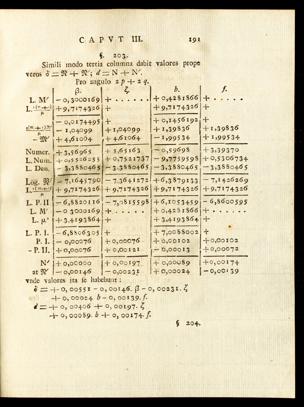 CAPVT III. 191
§. 203.
Simili modo tertia columna dabit valores prope
veros
Pro angulo 2 p + 2 q.
β. ζ. b. f.
L. M' − 0,3000169 + . . . . . . + 0,4281866 + . . . . . .
+ 9,7174326 + + 9,7174326 +
− 0,0174495 + + 0,1456192 +
− 1,04099 + 1,04099 + 1,39836 + 1,39836
+ 4,61064 + 4,61064 − 1,99534 + 1,99534
Numer. + 3,56965 + 5,65163 − 0,59698 + 3,39370
L. Num. + 0,5526255 + 0,7521737 − 9,7759598 + 0,5306734
L. Den. − 3,3880465 − 3,3880465 − 3,3880465 − 3,3880465
− 7,1645790 − 7,3641272 + 6,3879133 − 7,1426269
+ 9,7174326 + 9,7174326 + 9,7174326 + 9,7174326
L. P. II − 6,8820116 − 7,0815598 + 6,1053459 − 6,8600595
L. M' − 0 3000169 + + 0,4281866 +
L. μ' + 3,4193864 + + 3,4193864 +
L. P. I. − 6,8806305 + + 7,0088002 +
P. I. − 0,00076 + 0,00076 + 0,00102 + 0,00102
− P. II. + 0,00076 + 0,00121 − 0,00013 + 0,00072
N' + 0,00000 + 0,00197 + 0,00089 + 0,00174
− 0,00146 − 0,00231 + 0,00024 − 0,00139
vnde valores ita se habebunt:
= + 0, 00551 − 0, 00146. β − 0, 00231. ζ
+ 0, 00024 b − 0, 00139. f.
= + 0, 00406 + 0, 00197. ζ
+ 0, 00089. b + 0, 00174 f.
§ 204.